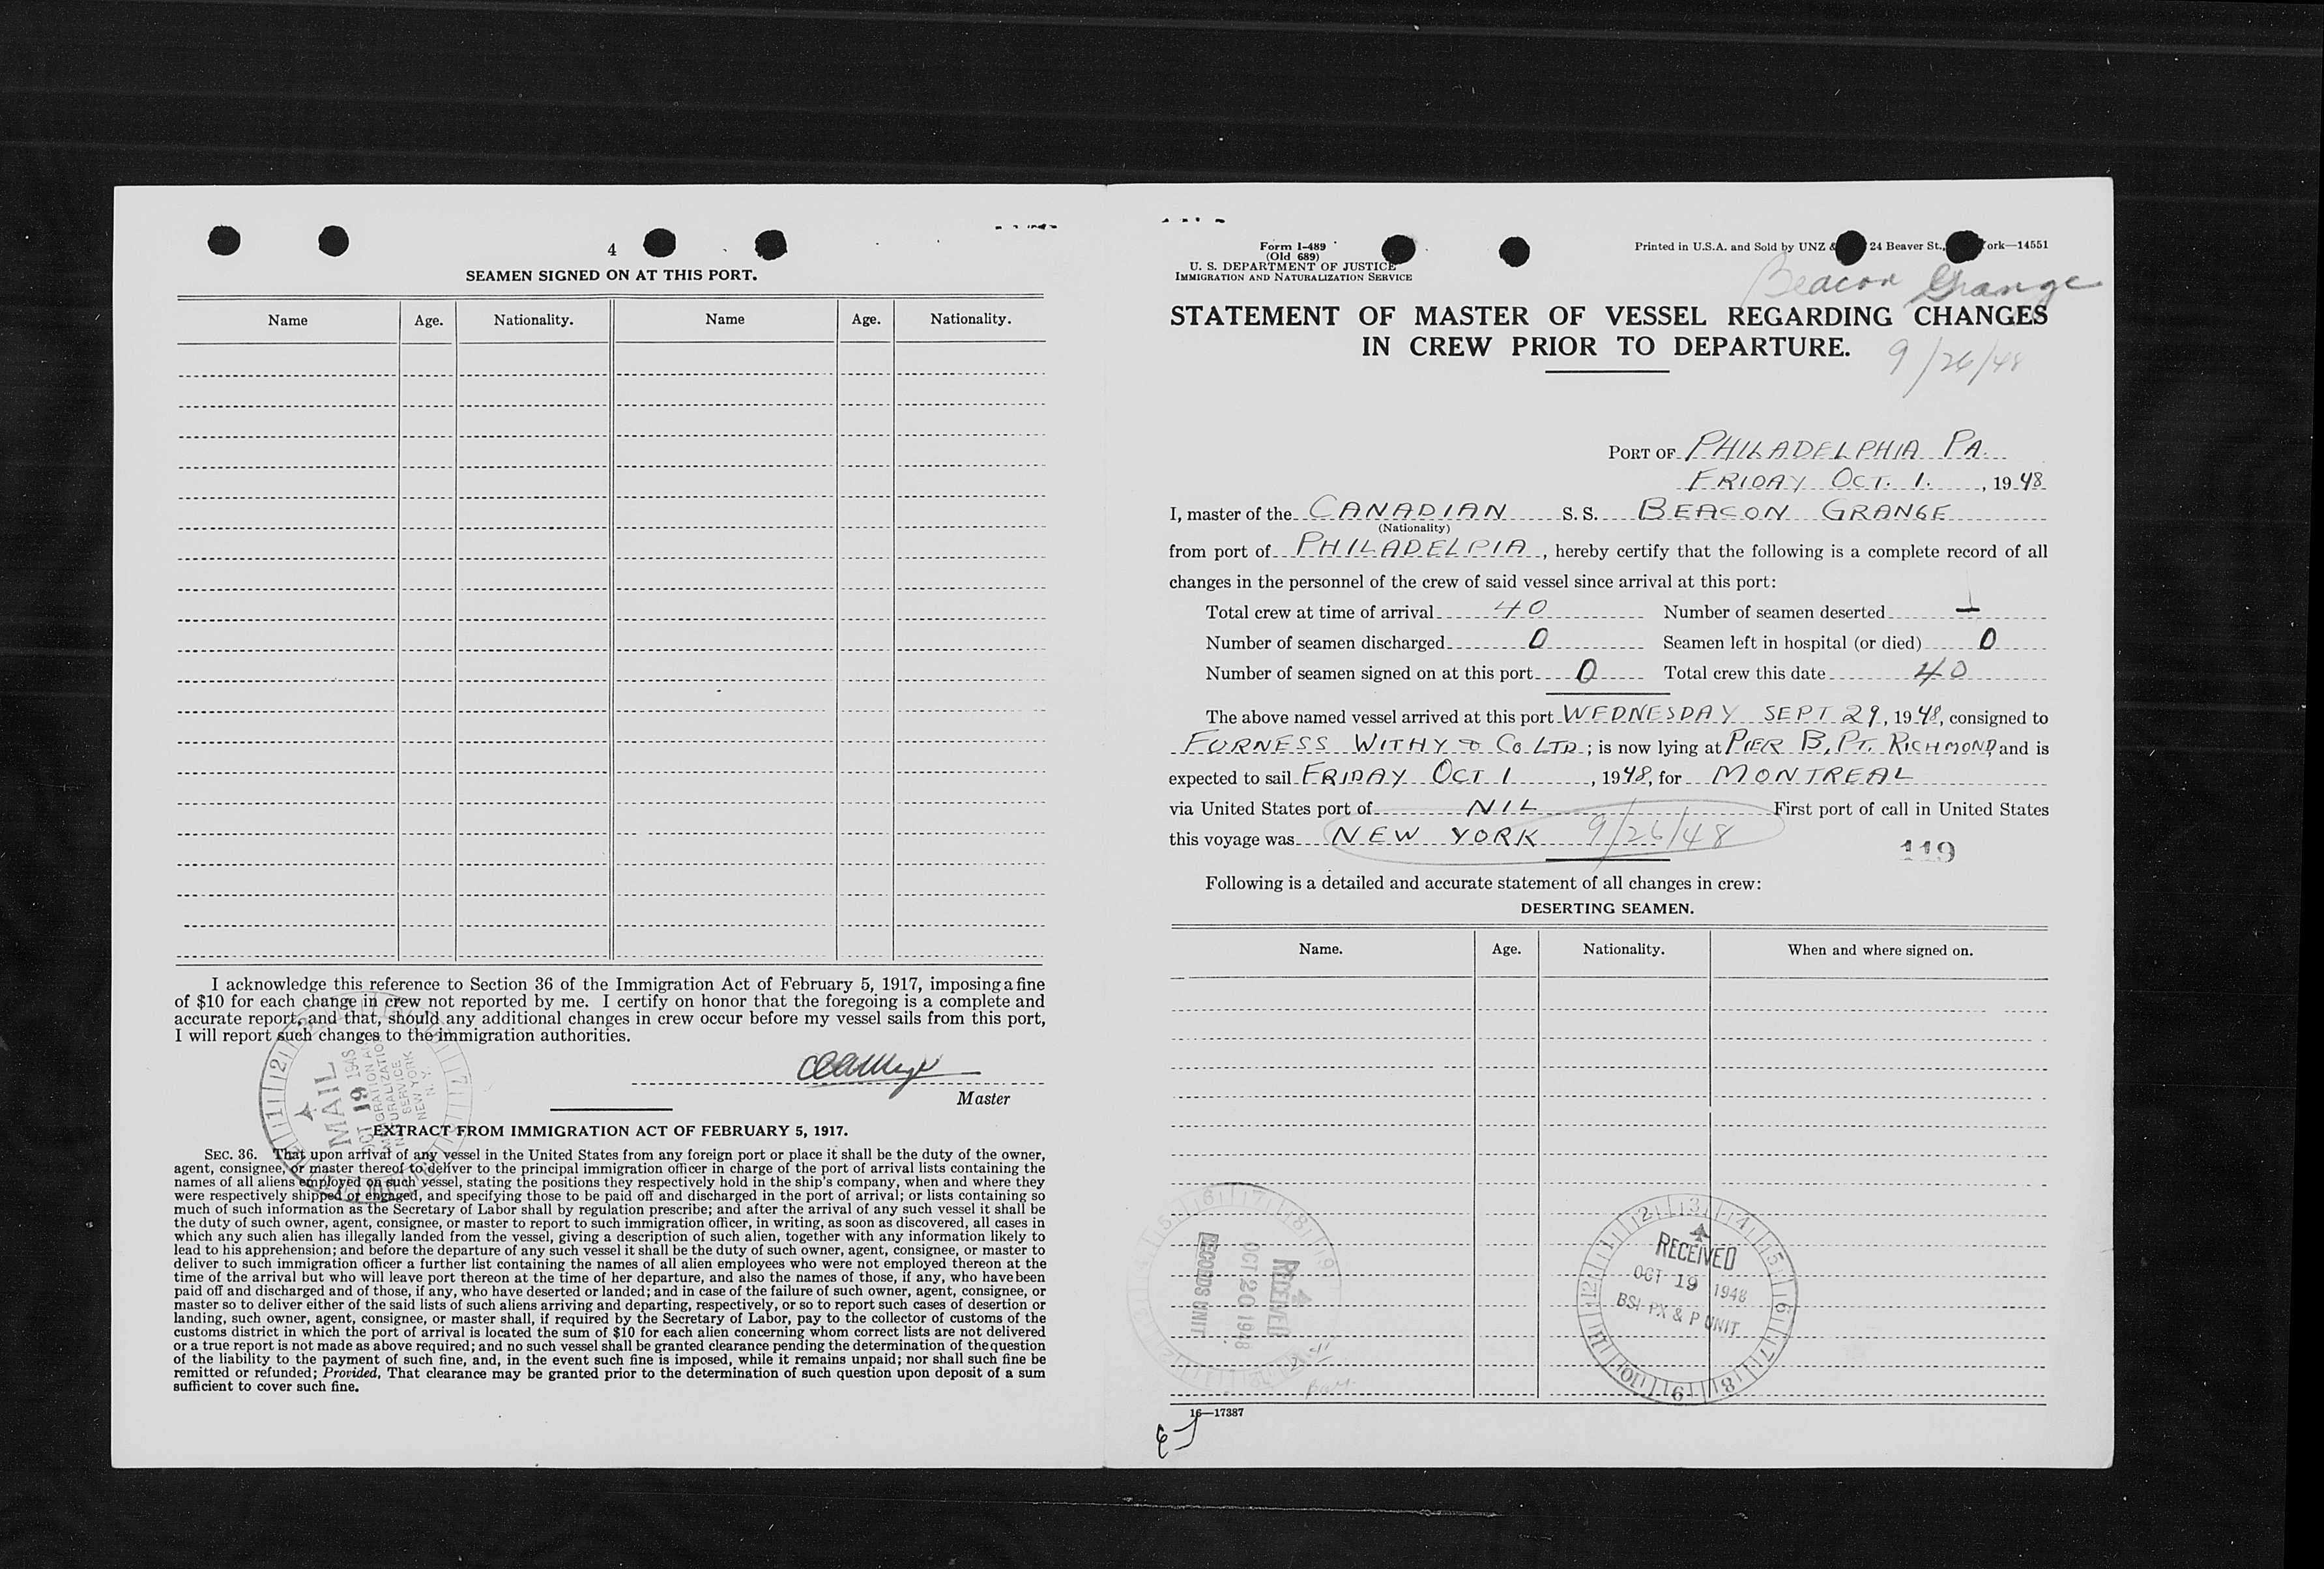 4
SEAMEN SIGNED ON AT THIS PORT.
Name Age. Nationality. Name Age. Nationality.
I acknowledge this reference to Section 36 of the Immigration Act of February 5, 1917, imposing a fine
of $10 for each change in crew not reported by me. I certify on honor that the foregoing is a complete and
accurate report, and that, should any additional changes in crew occur before my vessel sails from this port,
I will report such changes to the immigration authorities.
Master
MAIL
OCT 19 1948
IMMIGRATION AND
NATURALIZATION
SERVICE
NEW YORK
N. Y.
EXTRACT FROM IMMIGRATION ACT OF FEBRUARY 5, 1917.
SEC. 36. That upon arrival of any vessel in the United States from any foreign port or place it shall be the duty of the owner,
agent, consignee, or master thereof to deliver to the principal immigration officer in charge of the port of arrival lists containing the
names of all aliens employed on such vessel, stating the positions they respectively hold in the ship's company, when and where they
were respectively shipped or engaged, and specifying those to be paid off and discharged in the port of arrival; or lists containing so
much of such information as the Secretary of Labor shall by regulation prescribe; and after the arrival of any such vessel it shall be
the duty of such owner, agent, consignee, or master to report to such immigration officer, in writing, as soon as discovered, all cases in
which any such alien has illegally landed from the vessel, giving a description of such alien, together with any information likely to
lead to his apprehension; and before the departure of any such vessel it shall be the duty of such owner, agent, consignee, or master to
deliver to such immigration officer a further list containing the names of all alien employees who were not employed thereon at the
time of the arrival but who will leave port thereon at the time of her departure, and also the names of those, if any, who have been
paid off and discharged and of those, if any, who have deserted or landed; and in case of the failure of such owner, agent, consignee, or
master so to deliver either of the said lists of such aliens arriving and departing, respectively, or so to report such cases of desertion or
landing, such owner, agent, consignee, or master shall, if required by the Secretary of Labor, pay to the collector of customs of the
customs district in which the port of arrival is located the sum of $10 for each alien concerning whom correct lists are not delivered
or a true report is not made as above required; and no such vessel shall be granted clearance pending the determination of the question
of the liability to the payment of such fine, and, in the event such fine is imposed, while it remains unpaid; nor shall such fine be
remitted or refunded; Provided, That clearance may be granted prior to the determination of such question upon deposit of a sum
sufficient to cover such fine.
Form I-489
(Old 689)
U. S. DEPARTMENT OF JUSTICE
IMMIGRATION AND NATURALIZATION SERVICE
Printed in U.S.A. and Sold by UNZ & 24 Beaver St., ork—14551
Beacon Grange
STATEMENT OF MASTER OF VESSEL REGARDING CHANGES
IN CREW PRIOR TO DEPARTURE.
9/26/48
PORT OF PHILADELPHIA PA.
FRIDAY OCT. 1. , 1948
I, master of the CANADIAN S. S. BEACON GRANGE
(Nationality)
from port of PHILADELPIA, hereby certify that the following is a complete record of all
changes in the personnel of the crew of said vessel since arrival at this port:
Total crew at time of arrival 40 Number of seamen deserted
Number of seamen discharged 0 Seamen left in hospital (or died) 0
Number of seamen signed on at this port 0 Total crew this date 40
The above named vessel arrived at this port WEDNESDAY SEPT 29, 1948, consigned to
FURNESS WITHY & CO LTD; is now lying at PIER B, PT. RICHMOND, and is
expected to sail FRIDAY OCT 1, 1948, for MONTREAL
via United States port of NIL First port of call in United States
this voyage was NEW YORK 9/26/48
119
Following is a detailed and accurate statement of all changes in crew:
DESERTING SEAMEN.
Name. Age. Nationality. When and where signed on.
RECEIVED
OCT 20 1948
RECORDS UNIT
RECEIVED
OCT 19 1948
BSI PX & P UNIT
16—17387